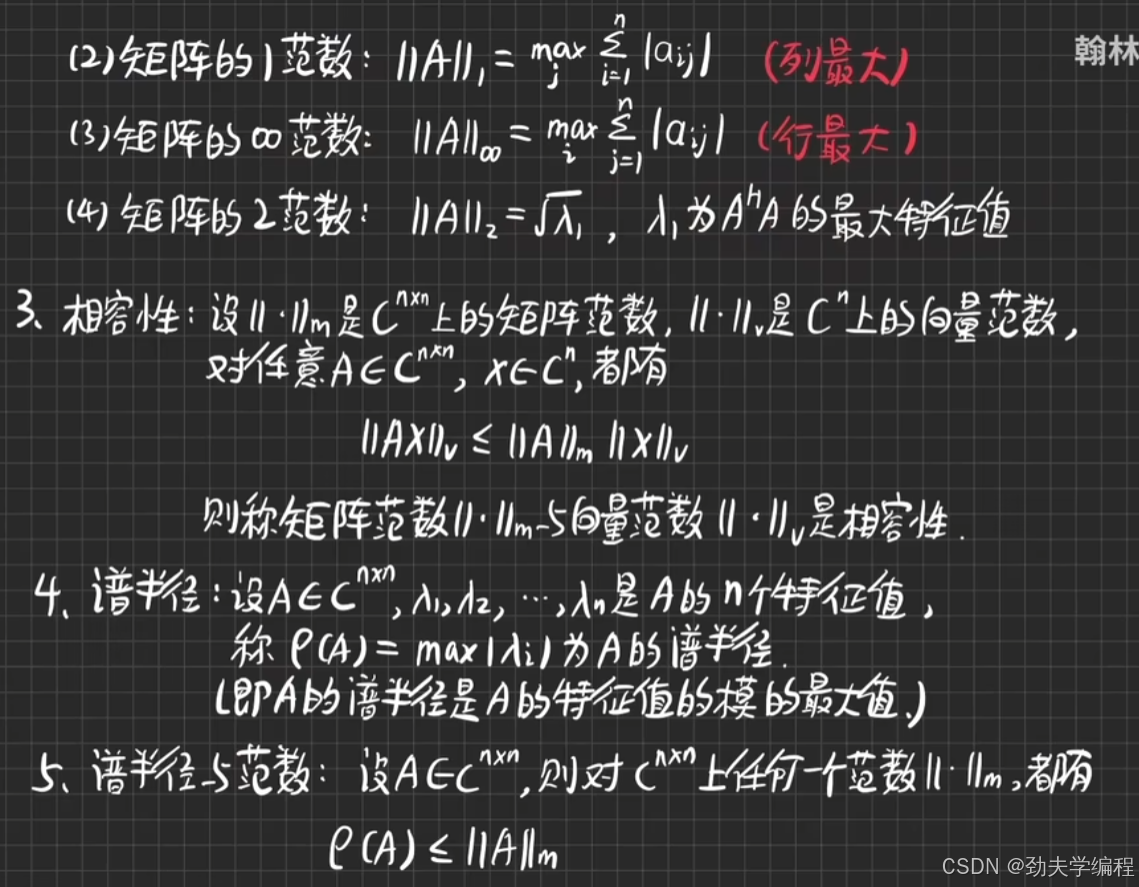 (2)矩阵的1范数: ||A||₁ = max_j Σ_{i=1}^{n} |a_{ij}| (列最大)
翰林
(3)矩阵的∞范数: ||A||_∞ = max_i Σ_{j=1}^{n} |a_{ij}| (行最大)
(4)矩阵的2范数: ||A||₂ = √λ₁ , λ₁为A^H A的最大特征值
3、相容性:设||·||_m是C^{n×n}上的矩阵范数, ||·||_v是C^n上的向量范数,
对任意A∈C^{n×n}, X∈C^n, 都有
||AX||_v ≤ ||A||_m ||X||_v
则称矩阵范数||·||_m与向量范数||·||_v是相容性.
4、谱半径:设A∈C^{n×n}, λ₁,λ₂, ⋯,λn是A的n个特征值,
称 ρ(A) = max|λi| 为A的谱半径.
(即A的谱半径是A的特征值的模的最大值.)
5、谱半径与范数: 设A∈C^{n×n},则对C^{n×n}上任何一个范数||·||_m,都有
ρ(A) ≤ ||A||_m
CSDN @劲夫学编程